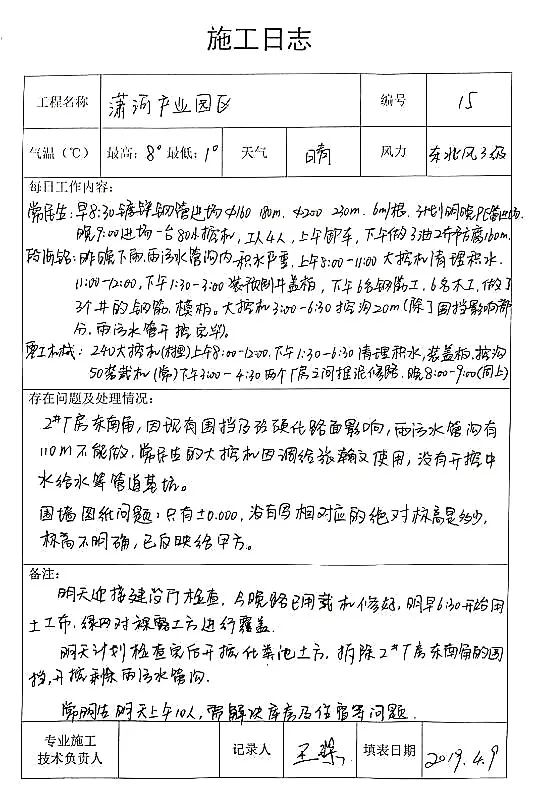 施工日志
工程名称 潇河产业园区 编号 15
气温（℃） 最高：8° 最低：1° 天气 晴 风力 东北风3级
每日工作内容：
早8:30镀锌钢管进场 Φ160 180m. Φ200 230m. 6m/根. 计划明晚PE管进场
晚9:00进场一台80小挖机，工人4人，上午卸车，下午做3油2布防腐160m.
昨晚下雨，雨污水管沟内积水严重，上午8:00-11:00大挖机清理积水，
11:00-12:00，下午1:30-3:00装预制井盖板，下午6名钢筋工，6名木工，做了
3个井的钢筋、模板。大挖机3:00-6:30挖沟20m（除了围挡影响部
分，雨污水管开挖完毕）。
240大挖机 上午8:00-12:00. 下午1:30-6:30清理积水，装盖板，挖沟
50装载机（常）下午3:00-4:30两个厂房之间推泥修路. 晚8:00-9:00（同上）
存在问题及处理情况：
2#厂房东南角，因现有围挡及硬化路面影响，雨污水管沟有
110m不能做. 的大挖机回调给张翰文使用，没有开挖中
水给水等管道基坑。
围墙图纸问题：只有±0.000，没有写相对应的绝对标高是多少，
标高不明确，已反映给甲方。
备注：
明天迎接建设厅检查，今晚路已用载机修好，明早6:30开始用
土工布、绿网对裸露土方进行覆盖.
明天计划检查完后开挖化粪池土方，拆除2#厂房东南角的围
挡，开挖剩余雨污水管沟.
明天上午10人，需解决库房及住宿等问题.
专业施工
技术负责人 记录人 王 填表日期 2019.4.9